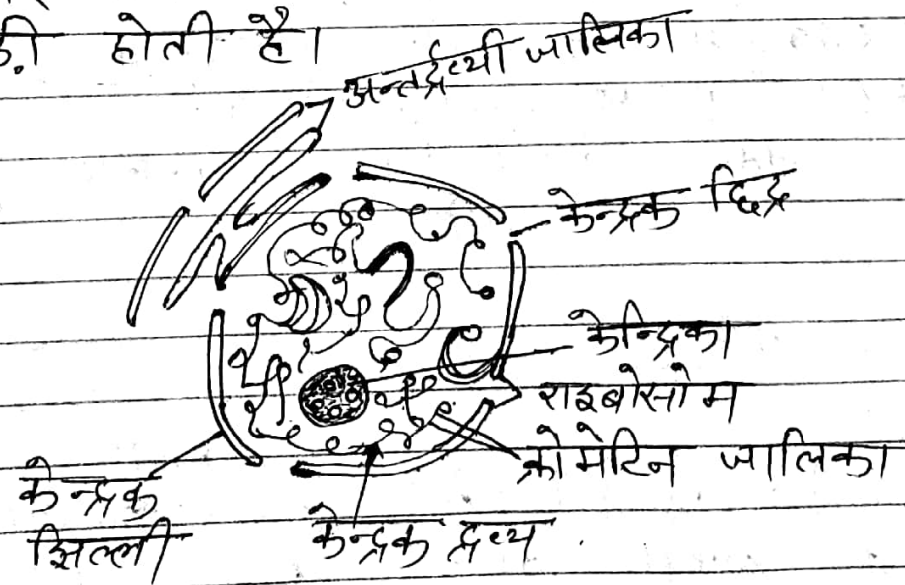 होती है।
अन्तर्द्रव्यी जालिका
केन्द्रक छिद्र
केन्द्रिका
राइबोसोम
क्रोमेटिन जालिका
केन्द्रक
झिल्ली
केन्द्रक द्रव्य